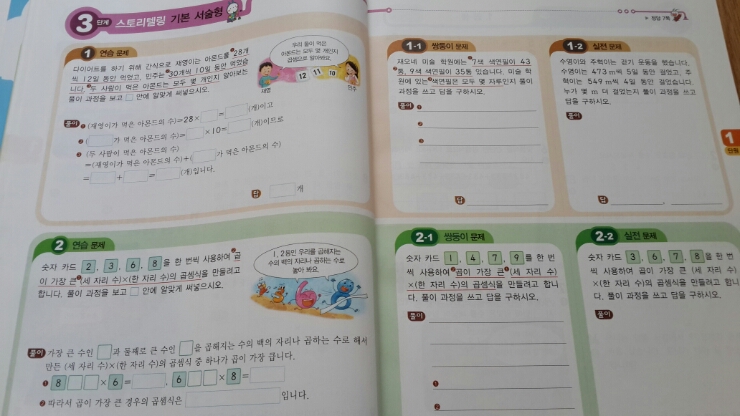 3 단계 스토리텔링 기본 서술형
1 연습 문제
다이어트를 하기 위해 간식으로 재영이는 아몬드를 28개
씩 12일 동안 먹었고, 민주는 30개씩 10일 동안 먹었습
니다. 두 사람이 먹은 아몬드는 모두 몇 개인지 알아보는
풀이 과정을 보고 □ 안에 알맞게 써넣으시오.
우리 둘이 먹은
아몬드는 모두 몇 개인지
곱셈으로 알아봐!
12 11 10
재영 민주
풀이 ❶ (재영이가 먹은 아몬드의 수)=28×□=□(개)이고
❷ (□가 먹은 아몬드의 수)=□×10=□(개)이므로
❸ (두 사람이 먹은 아몬드의 수)
=(재영이가 먹은 아몬드의 수)+(□가 먹은 아몬드의 수)
=□+□=□(개)입니다.
답 □ 개
2 연습 문제
숫자 카드 2, 3, 6, 8 을 한 번씩 사용하여 곱
이 가장 큰 (세 자리 수)×(한 자리 수)의 곱셈식을 만들려고
합니다. 풀이 과정을 보고 □ 안에 알맞게 써넣으시오.
1, 2등인 우리를 곱해지는
수의 백의 자리나 곱하는 수로
놓아 봐요.
풀이 가장 큰 수인 □과 둘째로 큰 수인 □을 곱해지는 수의 백의 자리나 곱하는 수로 해서
만든 (세 자리 수)×(한 자리 수)의 곱셈식 중 하나가 곱이 가장 큽니다.
❶ 8□□×6=□, 6□□×8=□
❷ 따라서 곱이 가장 큰 경우의 곱셈식은 □입니다.
1-1 쌍둥이 문제
재모네 미술 학원에는 7색 색연필이 43
통, 9색 색연필이 35통 있습니다. 미술 학
원에 있는 색연필은 모두 몇 자루인지 풀이
과정을 쓰고 답을 구하시오.
풀이 ❶
❷
❸
답
1-2 실전 문제
수영이와 주혁이는 걷기 운동을 했습니다.
수영이는 473 m씩 5일 동안 걸었고, 주
혁이는 549 m씩 4일 동안 걸었습니다.
누가 몇 m 더 걸었는지 풀이 과정을 쓰고
답을 구하시오.
풀이
답
1
단원
2-1 쌍둥이 문제
숫자 카드 1, 4, 7, 9 를 한 번
씩 사용하여 곱이 가장 큰 (세 자리 수)
×(한 자리 수)의 곱셈식을 만들려고 합니
다. 풀이 과정을 쓰고 답을 구하시오.
풀이
❶
❷
2-2 실전 문제
숫자 카드 3, 6, 7, 8 을 한 번
씩 사용하여 곱이 가장 큰 (세 자리 수)
×(한 자리 수)의 곱셈식을 만들려고 합니
다. 풀이 과정을 쓰고 답을 구하시오.
풀이